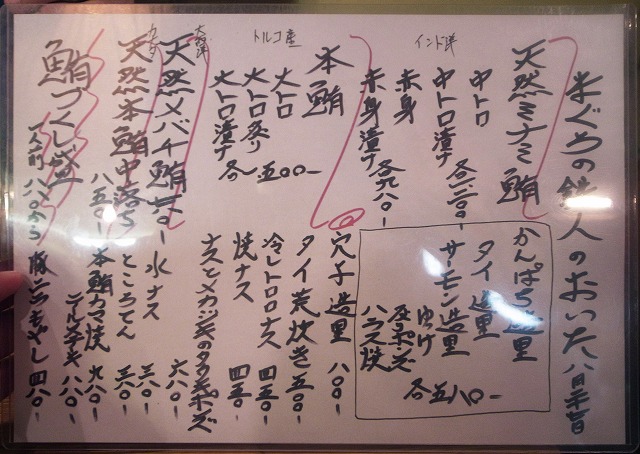 まぐろの鉄人のおいた 八月二十一日
インド洋
天然ミナミ鮪
中トロ
中トロ漬ケ 各一二〇〇-
赤身
赤身漬ケ 各九八〇-
トルコ産
本鮪
大トロ
大トロ炙り
大トロ漬ケ 各一五〇〇-
大西洋
天然メバチ鮪
カナダ
天然本鮪中落ち 八五〇-
鮪づくし盛
一人前 一八〇〇から
かんぱち造里
タイ造里
サーモン造里
ゆっけ
ハラス焼
各五八〇-
穴子造里 八〇〇-
タイ荒炊き 五〇〇-
冷しトロロナス 四五〇-
焼ナス 四五〇-
ナスとメカジキのタタキポンズ 六八〇-
水ナス 三八〇-
ところてん 三八〇-
本鮪カマ焼 九八〇-
豚ニラもやし 四八〇-